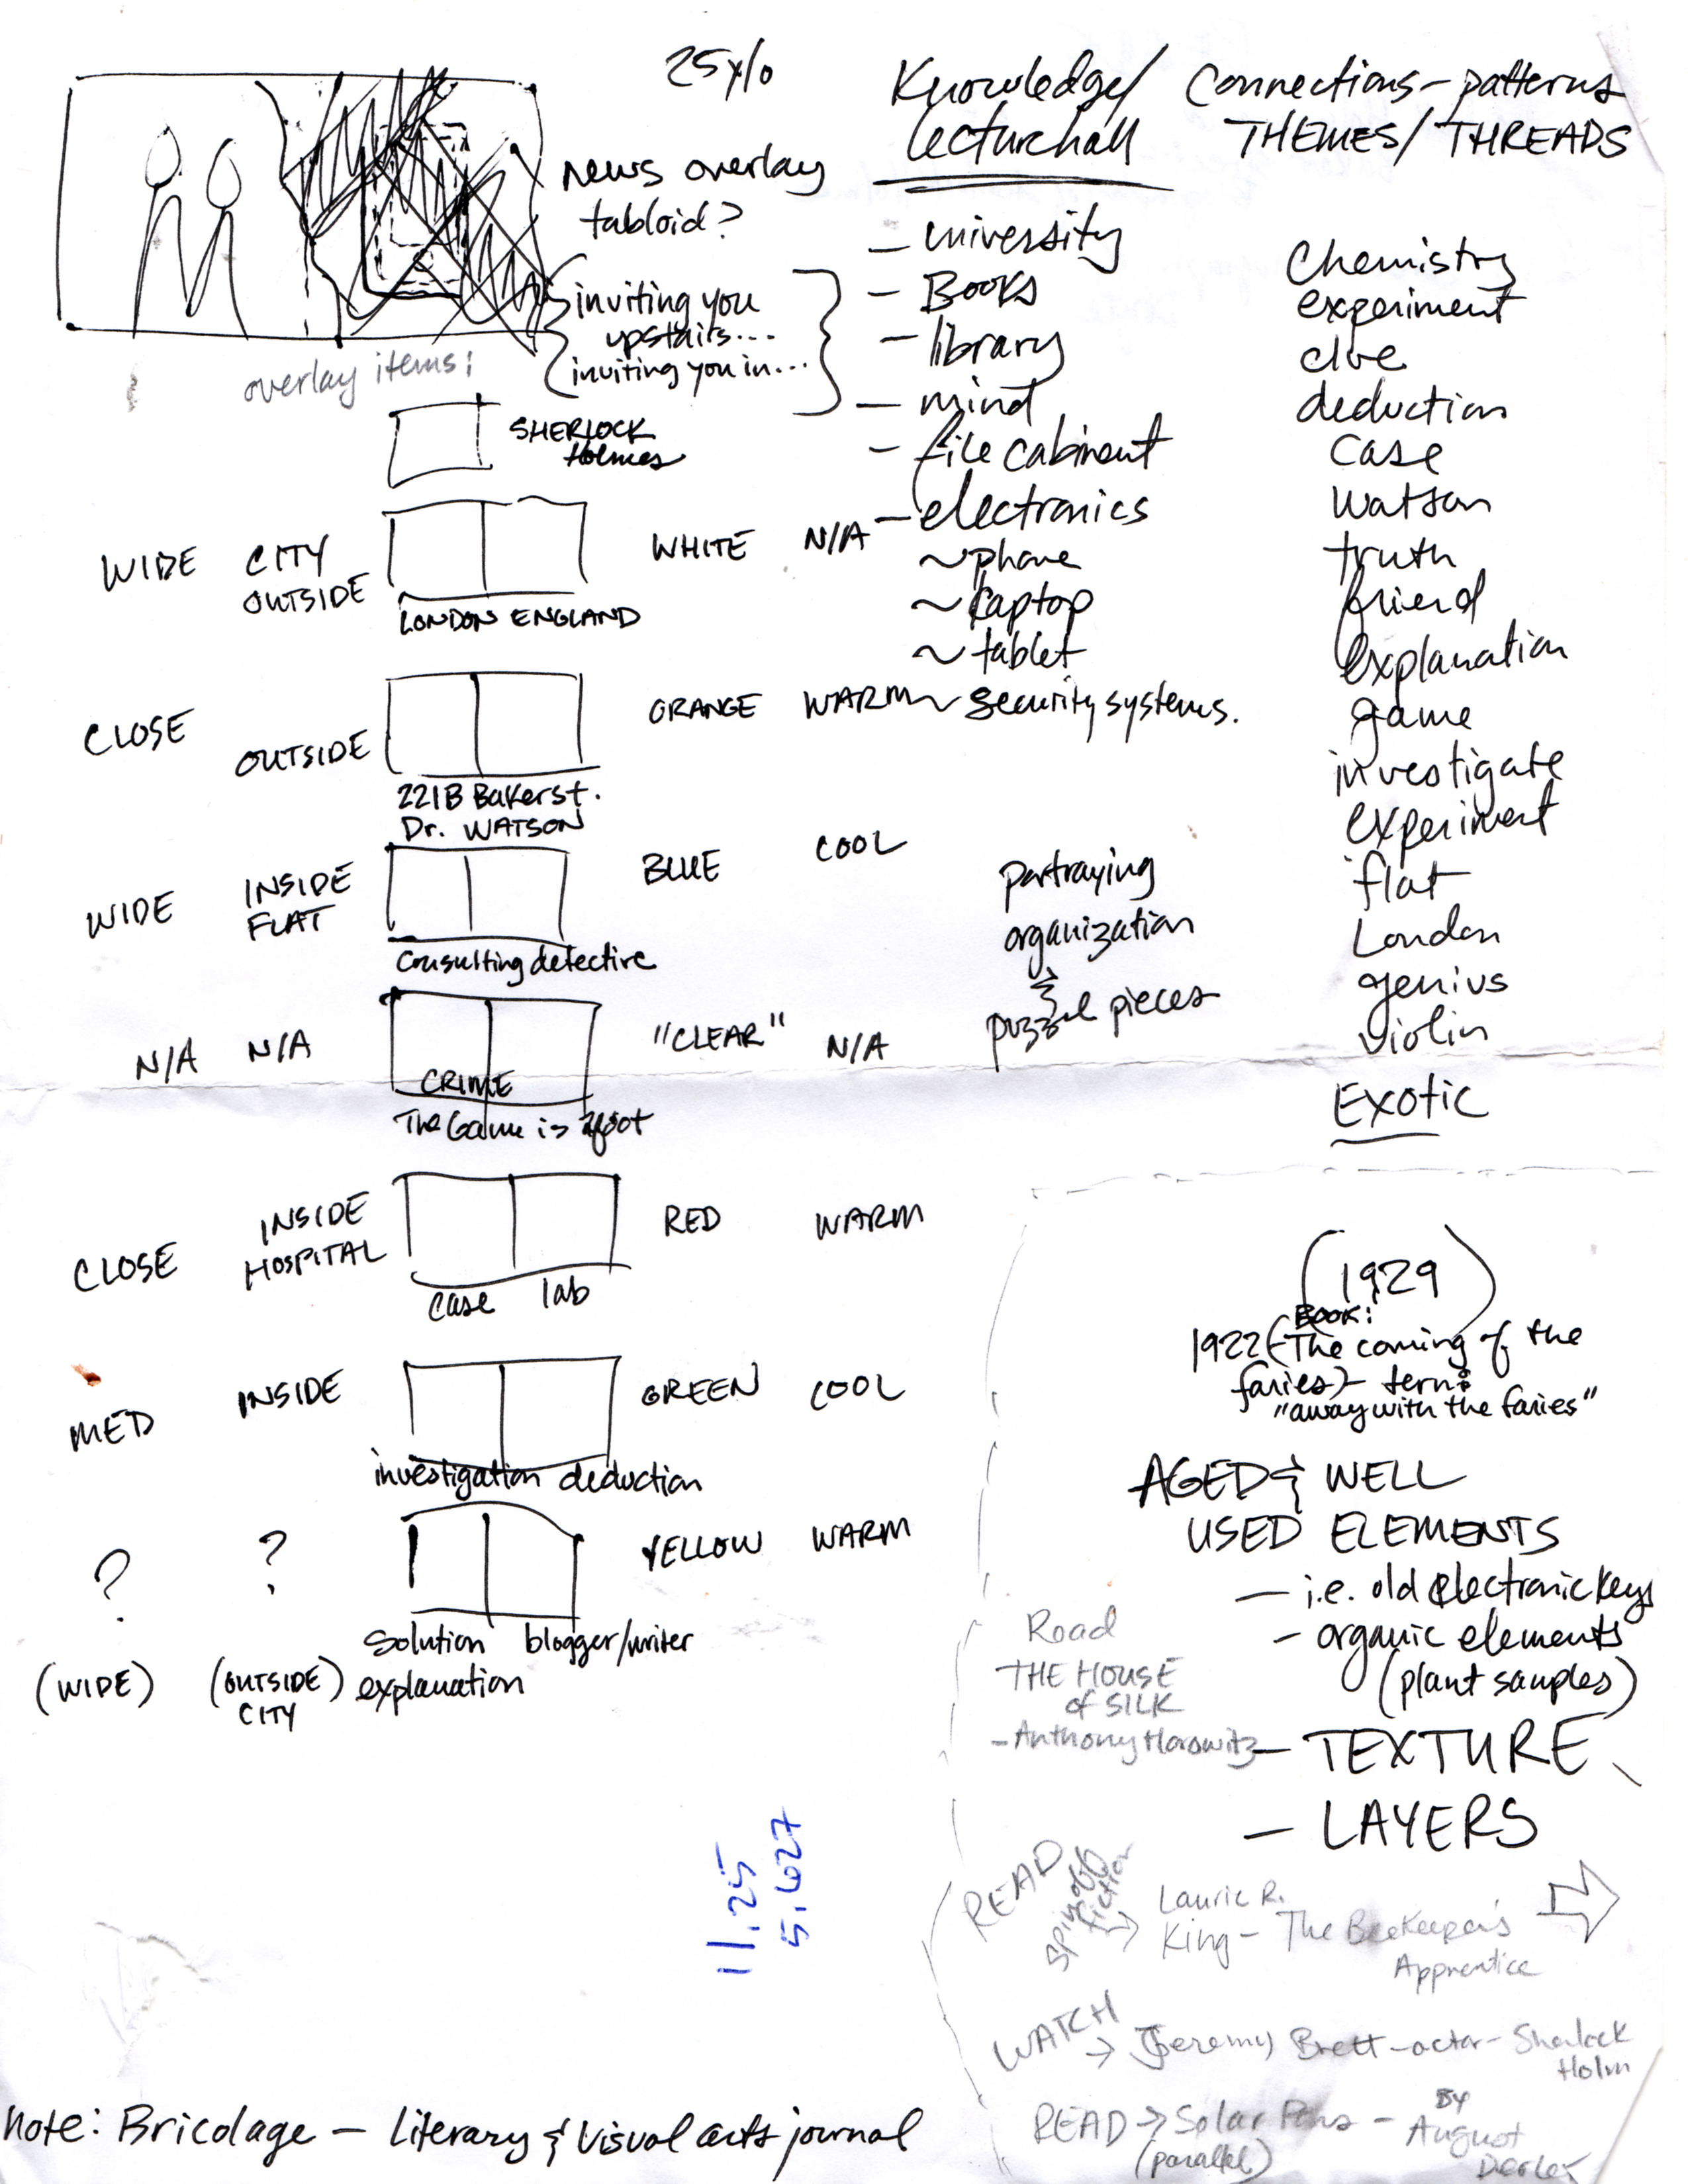 25x10
news overlay
tabloid?
inviting you
upstairs...
inviting you in...
overlay items:
SHERLOCK
Holmes
WIDE CITY OUTSIDE WHITE N/A
LONDON ENGLAND
CLOSE OUTSIDE ORANGE WARM
221B Baker st.
Dr. WATSON
WIDE INSIDE FLAT BLUE COOL
Consulting detective
N/A N/A "CLEAR" N/A
CRIME
The Game is afoot
CLOSE INSIDE HOSPITAL RED WARM
case lab
MED INSIDE GREEN COOL
investigation deduction
? ? YELLOW WARM
Solution blogger/writer
explanation
(WIDE) (OUTSIDE) CITY
Knowledge/
lecturehall
- university
- Books
- library
- mind
- file cabinent
- electronics
~ phone
~ laptop
~ tablet
~ security systems.
portraying
organization
&
puzzel pieces
Connections - patterns
THEMES/THREADS
Chemistry
experiment
clue
deduction
case
Watson
truth
friend
explanation
game
investigate
experiment
flat
London
genius
violin
Exotic
(1929)
BOOK:
1922 (The coming of the
faries) - term:
"away with the faries"
AGED & WELL
USED ELEMENTS
- i.e. old electronic keys
- organic elements
(plant samples)
- TEXTURE
- LAYERS
Read
THE HOUSE
of SILK
- Anthony Horowitz
READ
spin off
fiction
→ Laurie R.
King - The Beekeeper's
Apprentice
WATCH
→ (Jeremy) Brett - actor - Sherlock
Holm
READ → Solar Pons - BY
(parallel) August
Derleth
11.25
5.627
note: Bricolage - Literary & Visual arts journal